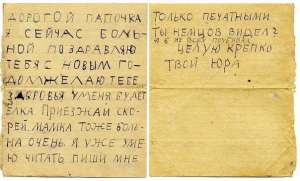 ДОРОГОЙ ПАПОЧКА
Я СЕЙЧАС БОЛЬ-
НОЙ ПОЗДРАВЛЯЮ
ТЕБЯ С НОВЫМ ГО-
ДОМ ЖЕЛАЮ ТЕБЕ
ЗДОРОВЬЯ У МЕНЯ БУДЕТ
ЕЛКА ПРИЕЗЖАЙ СКО-
РЕЙ. МАМКА ТОЖЕ БОЛЬ-
НА ОЧЕНЬ. Я УЖЕ УМЕ
Ю ЧИТАТЬ ПИШИ МНЕ
ТОЛЬКО ПЕЧАТНЫМИ
ТЫ НЕМЦОВ ВИДЕЛ?
ВСЕХ
ЦЕЛУЮ КРЕПКО
ТВОЙ ЮРА